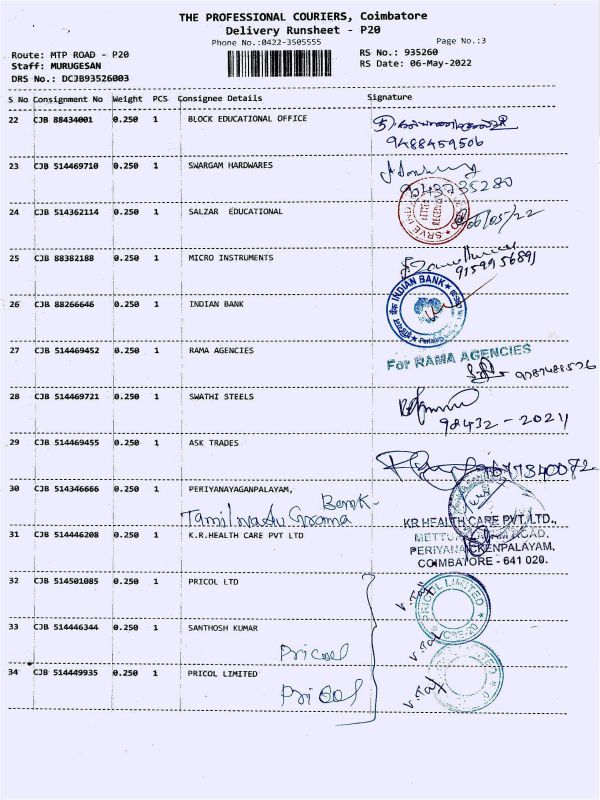 THE PROFESSIONAL COURIERS, Coimbatore
Delivery Runsheet - P20
Phone No.:0422-3505555
Page No.:3
Route: MTP ROAD - P20
RS No.: 935260
Staff: MURUGESAN
RS Date: 06-May-2022
DRS No.: DCJB93526003
S No Consignment No Weight PCS Consignee Details Signature
22 CJB 88434001 0.250 1 BLOCK EDUCATIONAL OFFICE
9488459506
23 CJB 514469710 0.250 1 SWARGAM HARDWARES
9043735280
24 CJB 514362114 0.250 1 SALZAR EDUCATIONAL
06/05/22
25 CJB 88382188 0.250 1 MICRO INSTRUMENTS
9159956891
26 CJB 88266646 0.250 1 INDIAN BANK
INDIAN BANK
27 CJB 514469452 0.250 1 RAMA AGENCIES
For RAMA AGENCIES
9787488526
28 CJB 514469721 0.250 1 SWATHI STEELS
98432 - 20211
29 CJB 514469455 0.250 1 ASK TRADES
30 CJB 514346666 0.250 1 PERIYANAYAGANPALAYAM,
Bank
31 CJB 514446208 0.250 1 K.R.HEALTH CARE PVT LTD
KR HEALTH CARE PVT. LTD.,
PERIYANAICKENPALAYAM,
COIMBATORE - 641 020.
32 CJB 514501085 0.250 1 PRICOL LTD
PRICOL LIMITED
33 CJB 514446344 0.250 1 SANTHOSH KUMAR
Pricol
34 CJB 514449935 0.250 1 PRICOL LIMITED
Pricol